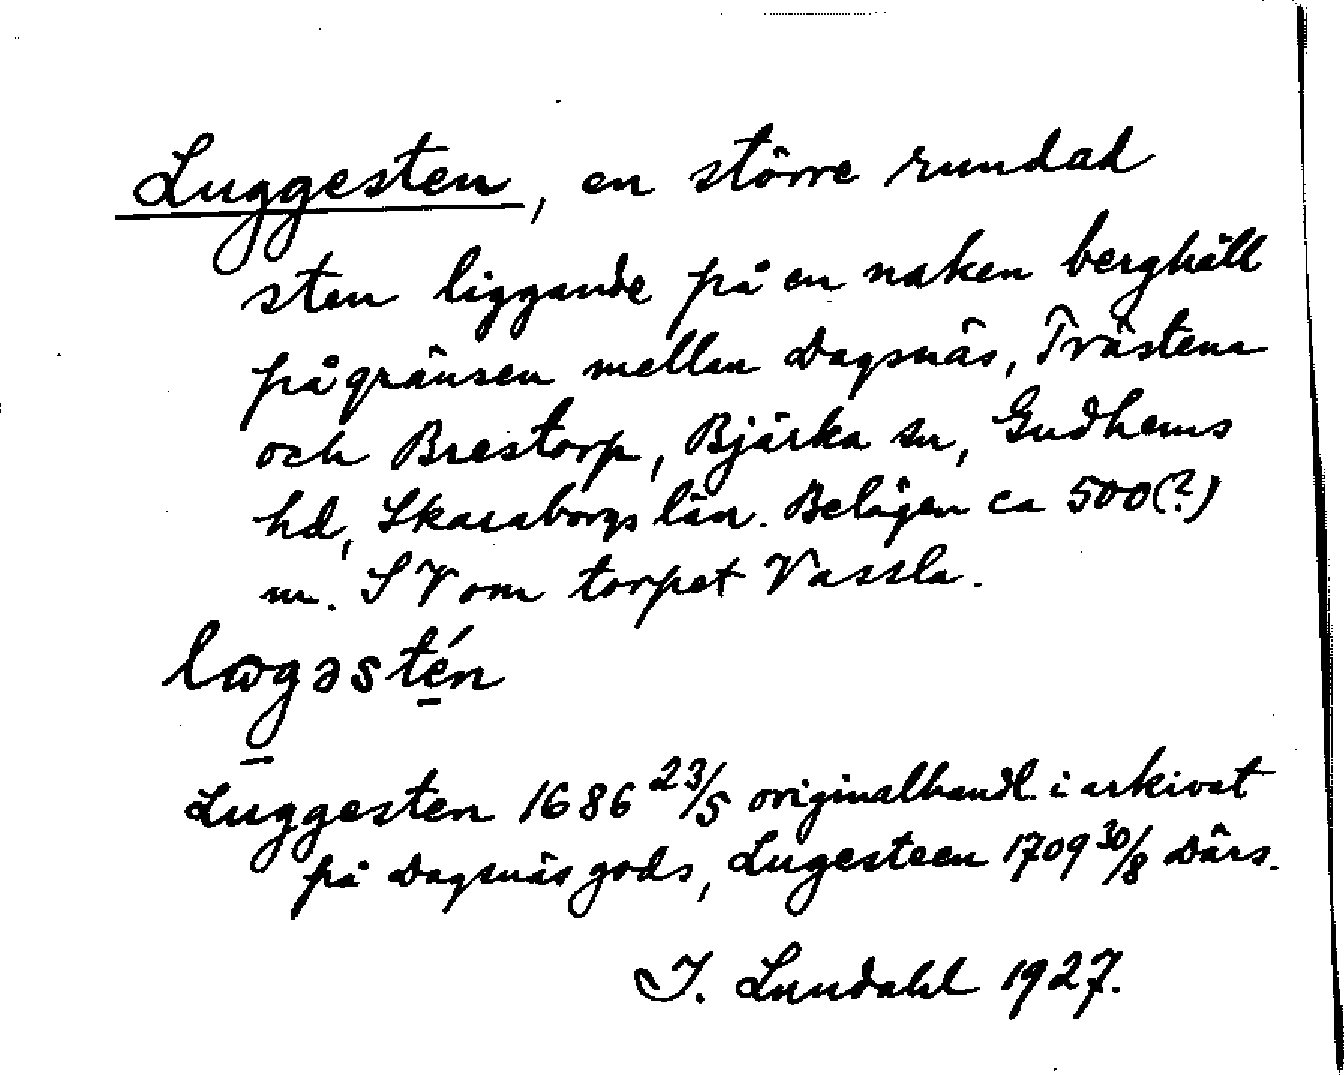 Luggesten, en större rundad
sten liggande på en naken berghäll
på gränsen mellan Dagsnäs, Trästena
och Brestorp, Bjärka sn, Gudhems
hd, Skaraborgs län. Belägen ca 500(?)
m. SV om torpet Vassla.
lɷgəstén
Luggesten 1686 23/5 originalhandl. i arkivet
på Dagsnäs gods, Lugesteen 1709 30/8 Därs.
I. Lundahl 1927.